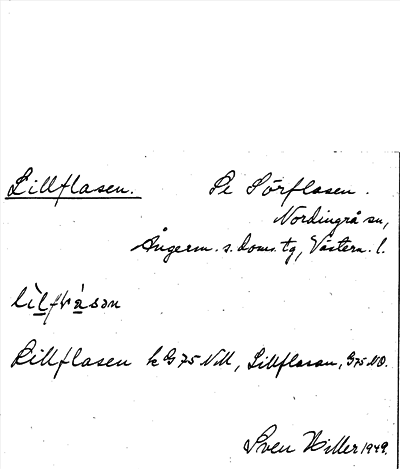 Lillflasen. Se Sörflasen.
Nordingrå sn,
Ångerm. s. doms. tg, Västern. l.
Lillflasen k G 75 NM, Lillflasan, G75 NO.
Sven Hiller 1949.